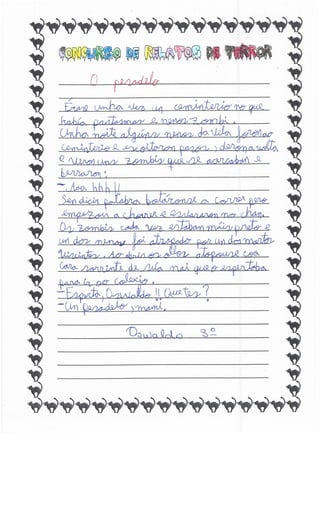 CONCURSO DE RELATOS DE TERROR
O pesadelo
Erase unha vez un ceminterio no que
había pantasmas e nenos zombi.
Unha noite algúns nenos da vila foron ao
ceminterio e escoitaron pasos; deron a volta
e viron uns zombis que se acercaban e
berraron:
- Aaa hhh!!
Sen dicir palabra botáronse a correr pero
empezou a chover e esvararon no chan.
Os zombis cada vez estaban máis preto e
un dos nenos foi atrapado por un dos mortos
viventes. Ao abrir os ollos atopouse coa
cara sorrinte de súa nai que o espertaba
para ir ao colexio.
- Esperta, Oswaldo!! Que tes?
- Un pesadelo, mami.
Oswaldo 3º